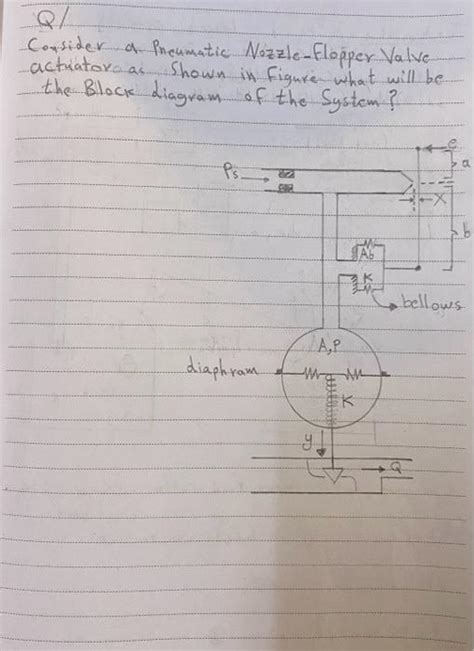 Q/
Consider a Pneumatic Nozzle-Flopper Valve
actuator as shown in Figure what will be
the Block diagram of the System?
e
a
Ps
X
b
Ab
K
bellows
A,P
diaphram
K
y
Q